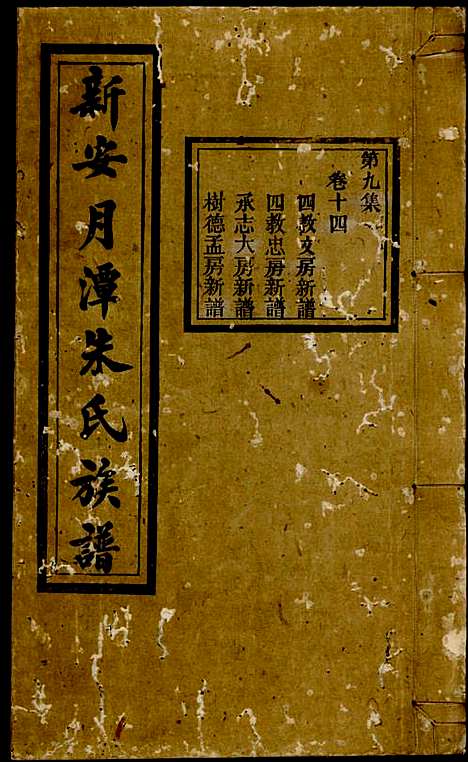 第九集
卷十四
四教文房新譜
四教忠房新譜
承志大房新譜
樹德孟房新譜
新安月潭朱氏族譜